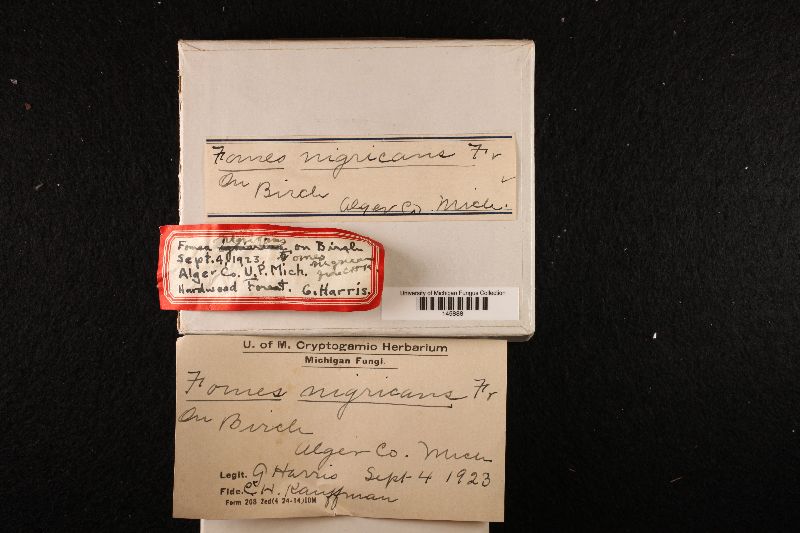 Fomes nigricans Fr
On Birch
Alger Co. Mich.
Fomes nigricans on Birch
Sept. 4, 1923, Fomes
Alger Co. U.P. Mich. nigricans
Hardwood Forest. G. Harris.
University of Michigan Fungus Collection
U. of M. Cryptogamic Herbarium
Michigan Fungi.
Fomes nigricans Fr
On Birch
Alger Co. Mich
Legit. G Harris Sept 4 1923
Fide. C H. Kauffman
Form 203 2ed(4 24-14)10M